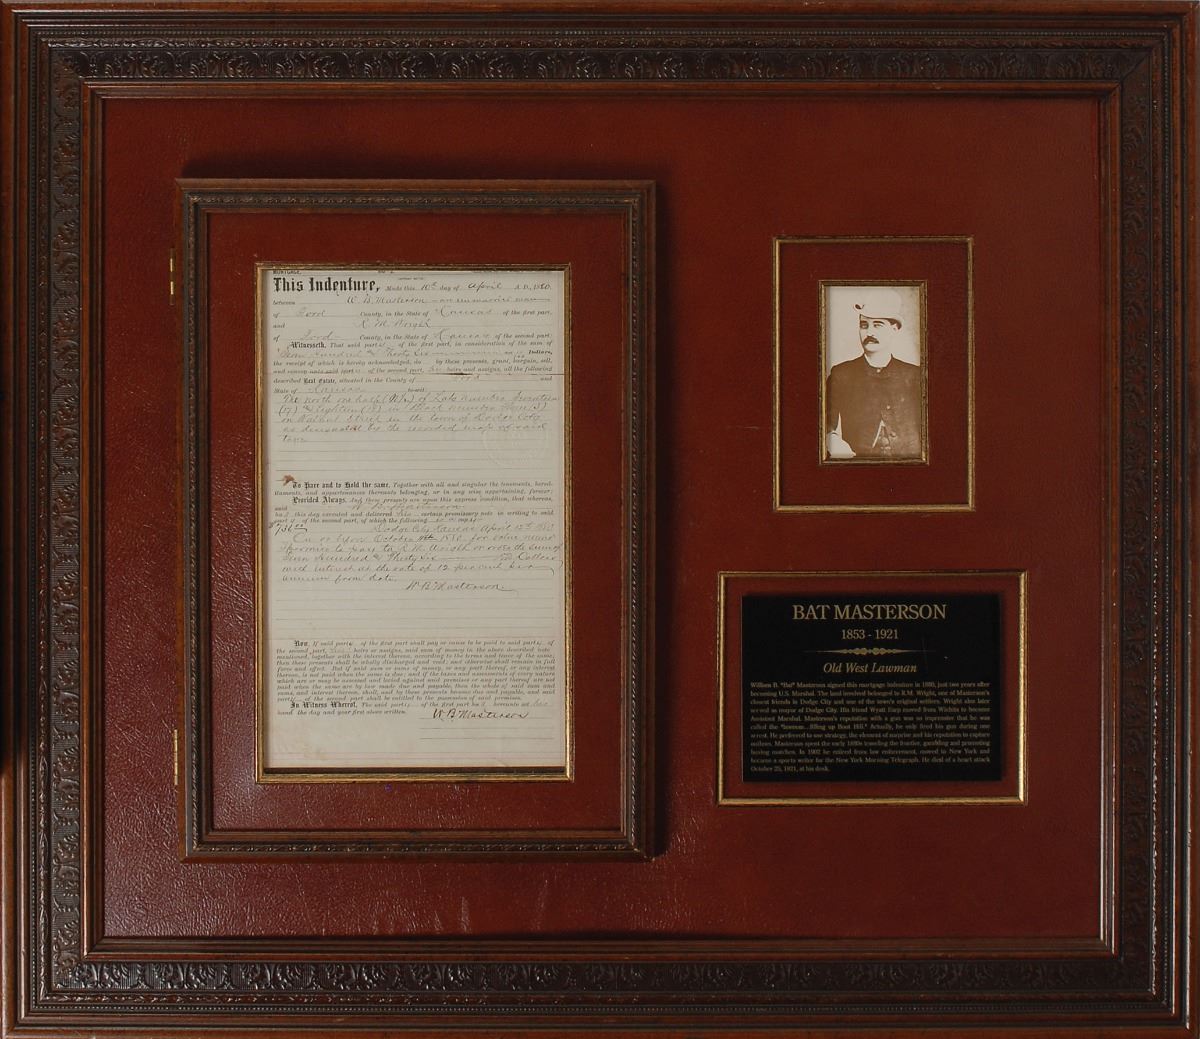 MORTGAGE.
This Indenture, Made this 10th day of April A.D., 1880,
between W. B. Masterson - an unmarried man
of Ford County, in the State of Kansas of the first part,
and R. M. Wright
of Ford County, in the State of Kansas of the second part:
Witnesseth, That said part of the first part, in consideration of the sum of
Seven Hundred & Thirty Six Dollars,
the receipt of which is hereby acknowledged, do by these presents, grant, bargain, sell,
and convey unto said part of the second part, his heirs and assigns, all the following
described Real Estate, situated in the County of Ford and
State of Kansas to-wit:
The North one half (N½) of Lots Number Seventeen
(17) & Eighteen (18) in Block Number
on Walnut Street in the town of Dodge City
as designated by the recorded map of said
town
To Have and to Hold the same, Together with all and singular the tenements, hered-
itaments, and appurtenances thereunto belonging, or in any wise appertaining, forever:
Provided Always, And these presents are upon this express condition, that whereas,
said W. B. Masterson
ha s this day executed and delivered his certain promissory note in writing to said
part y of the second part, of which the following is a copy:
$736 00 Dodge City Kansas April 12th 1880
On or before October 1880 for value received
I promise to pay to R. M. Wright or order the sum of
Seven Hundred & Thirty Six Dollars
with interest at the rate of 12 per cent per
annum from date.
W. B. Masterson
Now, If said part of the first part shall pay or cause to be paid to said part of
the second part, his heirs or assigns, said sum of money in the above described note
mentioned, together with the interest thereon, according to the terms and tenor of the same,
then these presents shall be wholly discharged and void; and otherwise shall remain in full
force and effect. But if said sum or sums of money, or any part thereof, or any interest
thereon, is not paid when the same is due; and if the taxes and assessments of every nature
which are or may be assessed and levied against said premises or any part thereof are not
paid when the same are by law made due and payable, then the whole of said sum and
sums, and interest thereon, shall, and by these presents become due and payable, and said
part of the second part shall be entitled to the possession of said premises.
In Witness Whereof, The said part y of the first part ha s hereunto set his
hand the day and year first above written.
W B Masterson
BAT MASTERSON
1853 - 1921
Old West Lawman
William B. "Bat" Masterson signed this mortgage indenture in 1880, just two years after
becoming U.S. Marshal. The land involved belonged to R.M. Wright, one of Masterson's
closest friends in Dodge City and one of the town's original settlers. Wright also later
served as mayor of Dodge City. His friend Wyatt Earp moved from Wichita to become
Assistant Marshal. Masterson's reputation with a gun was so impressive that he was
called the "lawman...filling up Boot Hill." Actually, he only fired his gun during one
arrest. He preferred to use strategy, the element of surprise and his reputation to capture
outlaws. Masterson spent the early 1880s traveling the frontier, gambling and promoting
boxing matches. In 1902 he retired from law enforcement, moved to New York and
became a sports writer for the New York Morning Telegraph. He died of a heart attack
October 25, 1921, at his desk.